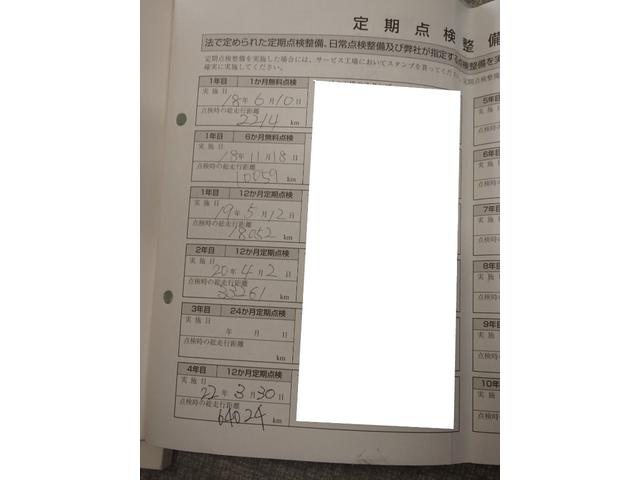 定期点検整備
法で定められた定期点検整備、日常点検整備及び弊社が指定する点検整備を実
定期点検整備を実施した場合には、サービス工場においてスタンプを貰ってください。
確実に実施してください。
1年目 1か月無料点検
実施日
18年6月10日
点検時の総走行距離
2214 km
1年目 6か月無料点検
実施日
18年11月18日
点検時の総走行距離
10059 km
1年目 12か月定期点検
実施日
19年5月12日
点検時の総走行距離
18052 km
2年目 12か月定期点検
実施日
20年4月2日
点検時の総走行距離
33261 km
3年目 24か月定期点検
実施日
年 月 日
点検時の総走行距離
km
4年目 12か月定期点検
実施日
22年3月30日
点検時の総走行距離
64024 km
5年目
6年目
7年目
8年目
9年目
10年